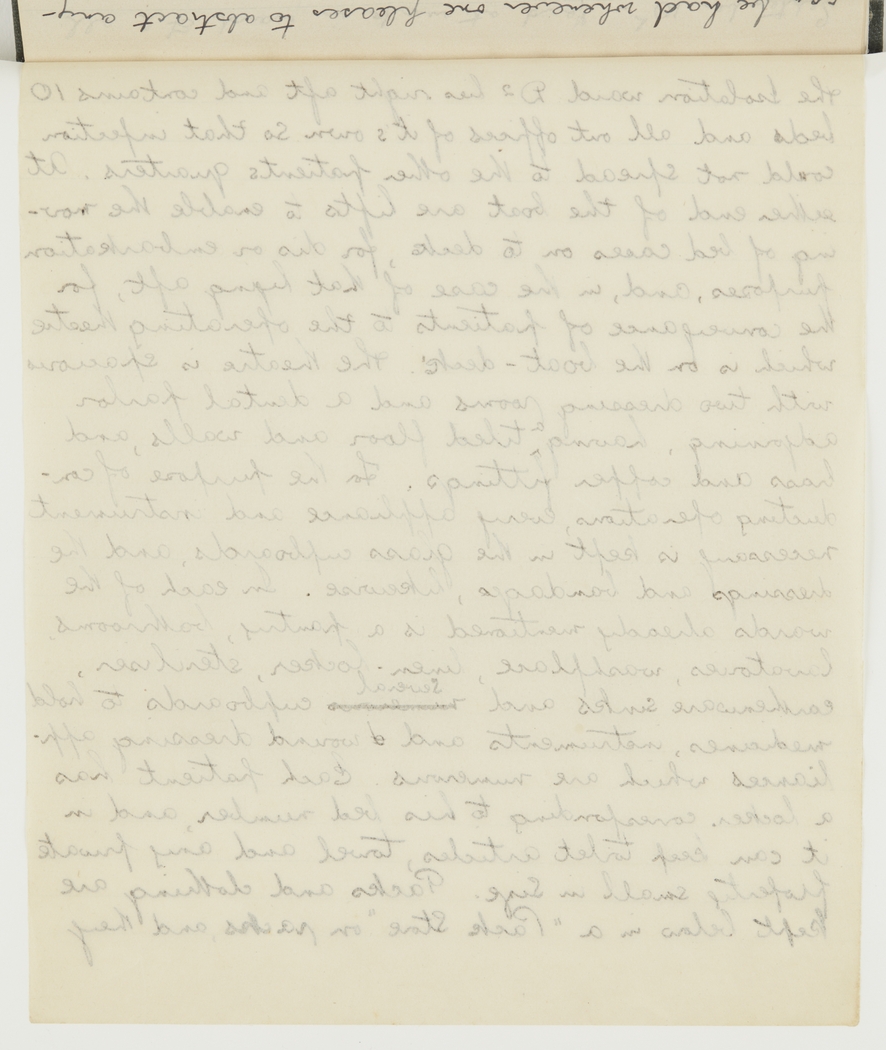 can be had whenever one pleases to abstract any-
The Isolation ward D2 lies right aft and contains 10
beds and all out offices of it's own so that infection
could not spread to the other patients quarters. At
either end of the boat are lifts to enable the mov-
ing of bed cases on to deck, for dis or embarkation
purposes, and, in the case of that lying aft, for
the conveyance of patients to the operating theatre
which is on the boat-deck. The theatre is spacious
with two dressing rooms and a dental parlor
adjoining, having tiled floor and walls, and
brass and copper fittings. For the purpose of con-
ducting operations, every appliance and instrument
necessary is kept in the glass cupboards, and the
dressings and bandages, likewise. In each of the
wards already mentioned is a pantry, bathrooms,
lavatories, washplace, linen-locker, steriliser,
earthenware sinks and numerous several cupboards to hold
medicines, instruments and wound dressing app-
liances which are numerous. Each patient has
a locker corresponding to his bed number, and in
it can keep toilet articles, towel and any private
property small in size. Packs and clothing are
kept below in a "Pack Store" on racks, and they